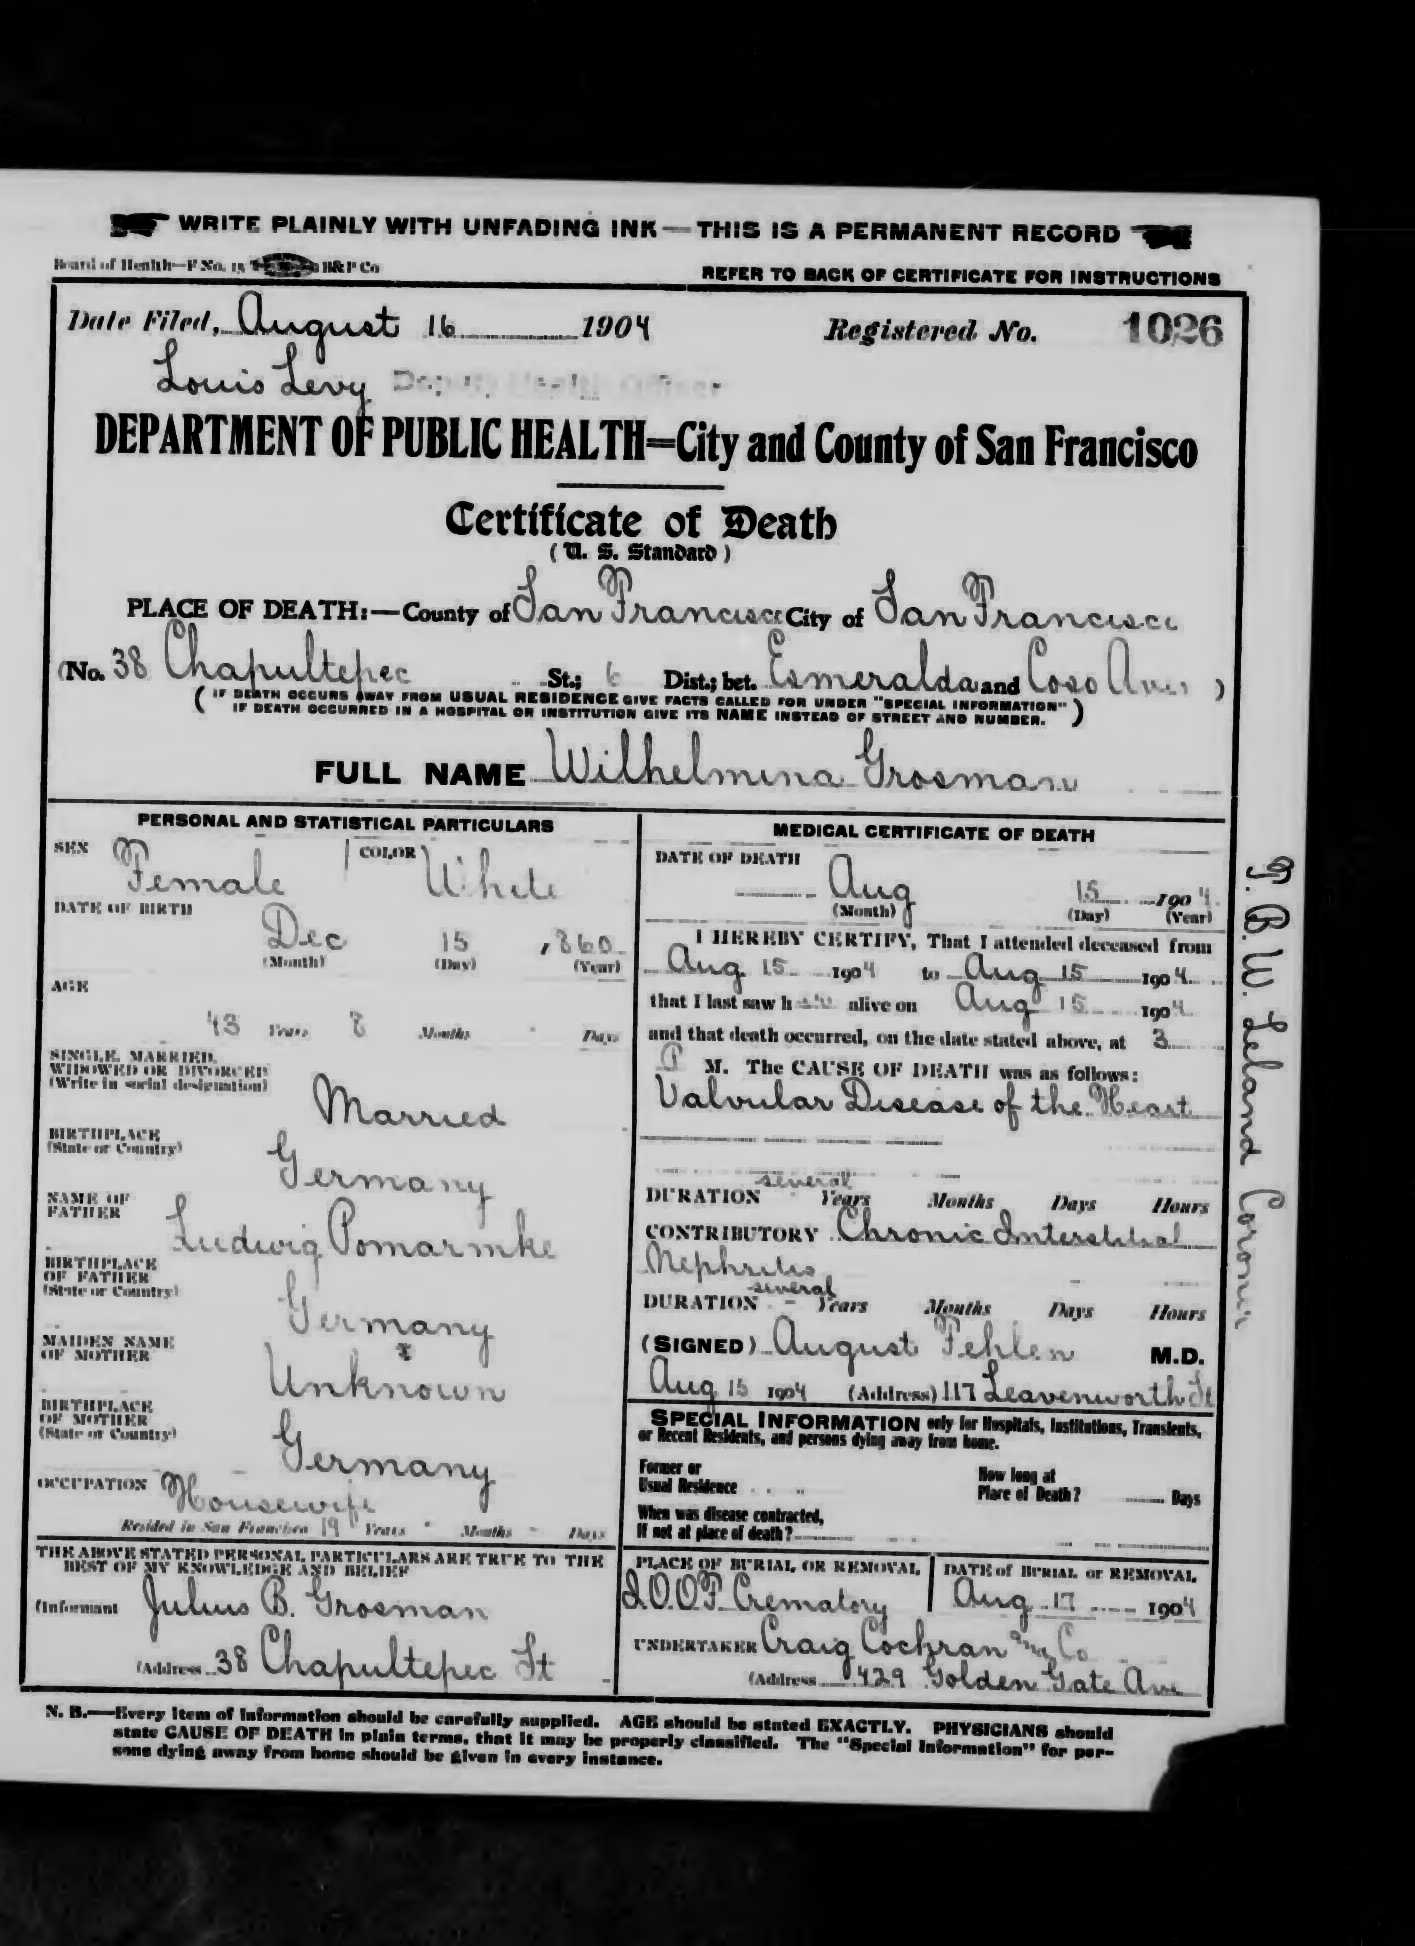 WRITE PLAINLY WITH UNFADING INK — THIS IS A PERMANENT RECORD
Board of Health—F No. 15 B&P Co
REFER TO BACK OF CERTIFICATE FOR INSTRUCTIONS
Date Filed, August 16 1904 Registered No. 1026
Louis Levy Deputy Health Officer
DEPARTMENT OF PUBLIC HEALTH=City and County of San Francisco
Certificate of Death
(U. S. Standard)
PLACE OF DEATH:—County of San Francisco City of San Francisco
(No. 38 Chapultepec St.; 6 Dist.; bet. Esmeralda and Coso Aves )
(IF DEATH OCCURS AWAY FROM USUAL RESIDENCE GIVE FACTS CALLED FOR UNDER "SPECIAL INFORMATION"
IF DEATH OCCURRED IN A HOSPITAL OR INSTITUTION GIVE ITS NAME INSTEAD OF STREET AND NUMBER.)
FULL NAME Wilhelmina Grosman
PERSONAL AND STATISTICAL PARTICULARS
SEX Female COLOR White
DATE OF BIRTH
Dec 15 1860
(Month) (Day) (Year)
AGE
43 Years 8 Months Days
SINGLE, MARRIED,
WIDOWED OR DIVORCED
(Write in social designation)
Married
BIRTHPLACE
(State or Country)
Germany
NAME OF
FATHER
Ludwig Pomarmke
BIRTHPLACE
OF FATHER
(State or Country)
Germany
MAIDEN NAME
OF MOTHER
Unknown
BIRTHPLACE
OF MOTHER
(State or Country)
Germany
OCCUPATION Housewife
Resided in San Francisco 19 Years Months Days
THE ABOVE STATED PERSONAL PARTICULARS ARE TRUE TO THE
BEST OF MY KNOWLEDGE AND BELIEF
(Informant Julius B. Grosman
(Address 38 Chapultepec St
MEDICAL CERTIFICATE OF DEATH
DATE OF DEATH
Aug 15 1904
(Month) (Day) (Year)
I HEREBY CERTIFY, That I attended deceased from
Aug 15 1904 to Aug 15 1904
that I last saw her alive on Aug 15 1904
and that death occurred, on the date stated above, at 3
P M. The CAUSE OF DEATH was as follows:
Valvular Disease of the Heart
several
DURATION Years Months Days Hours
CONTRIBUTORY Chronic Interstitial
Nephritis
several
DURATION Years Months Days Hours
(SIGNED) August Fehlen M.D.
Aug 15 1904 (Address) 117 Leavenworth St
SPECIAL INFORMATION only for Hospitals, Institutions, Transients,
or Recent Residents, and persons dying away from home.
Former or
Usual Residence
How long at
Place of Death? Days
When was disease contracted,
If not at place of death?
PLACE OF BURIAL OR REMOVAL
I.O.O.F. Crematory
DATE of BURIAL or REMOVAL
Aug 17 1904
UNDERTAKER Craig Cochran and Co
(Address 429 Golden Gate Ave
T. B. W. Leland Coroner
N. B.—Every item of information should be carefully supplied. AGE should be stated EXACTLY. PHYSICIANS should
state CAUSE OF DEATH in plain terms, that it may be properly classified. The "Special Information" for per-
sons dying away from home should be given in every instance.